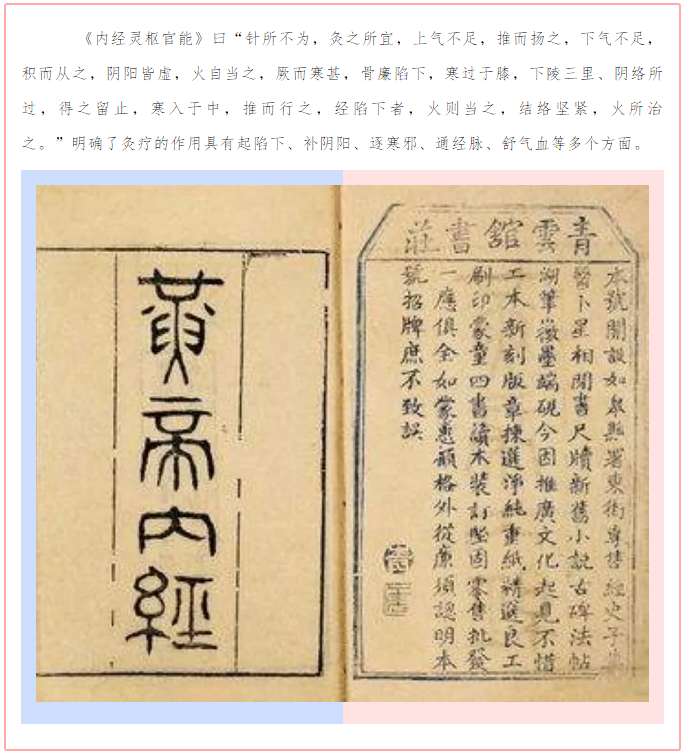 《内经灵枢官能》曰“针所不为，灸之所宜，上气不足，推而扬之，下气不足，
积而从之，阴阳皆虚，火自当之，厥而寒甚，骨廉陷下，寒过于膝，下陵三里、阴络所
过，得之留止，寒入于中，推而行之，经陷下者，火则当之，结络坚紧，火所治
之。”明确了灸疗的作用具有起陷下、补阴阳、逐寒邪、通经脉、舒气血等多个方面。
青雲舘書莊
本號開設如皐縣署東街專售經史子集
醫卜星相閒書尺牘新舊小說古碑法帖
湖筆徽墨端硯今因推廣文化起見不惜
工本新刻版章揀選淨純重紙精選良工
刷印蒙童四書讀本裝訂堅固零售批發
一應俱全如蒙惠顧格外從廉須認明本
號招牌庶不致誤
黃帝内經